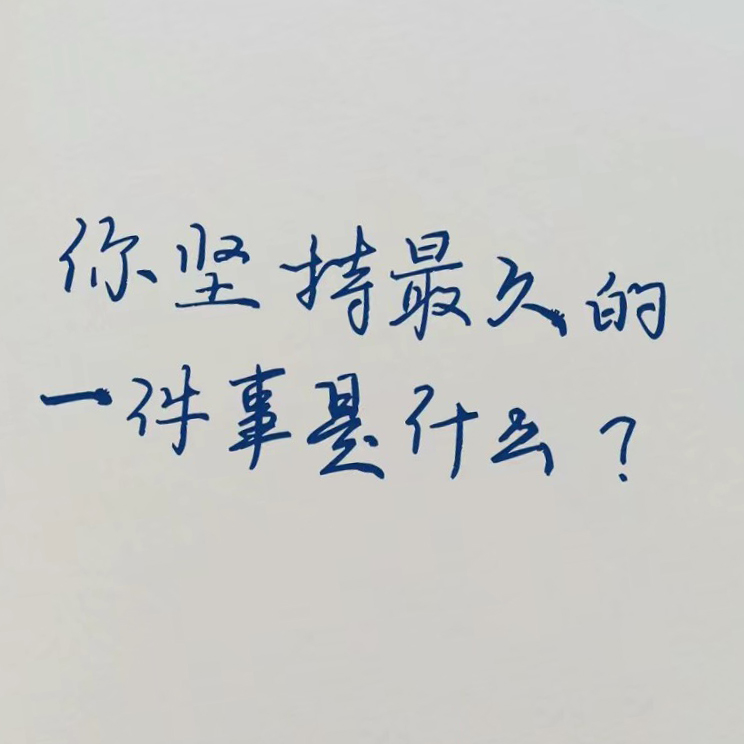 你坚持最久的
一件事是什么？